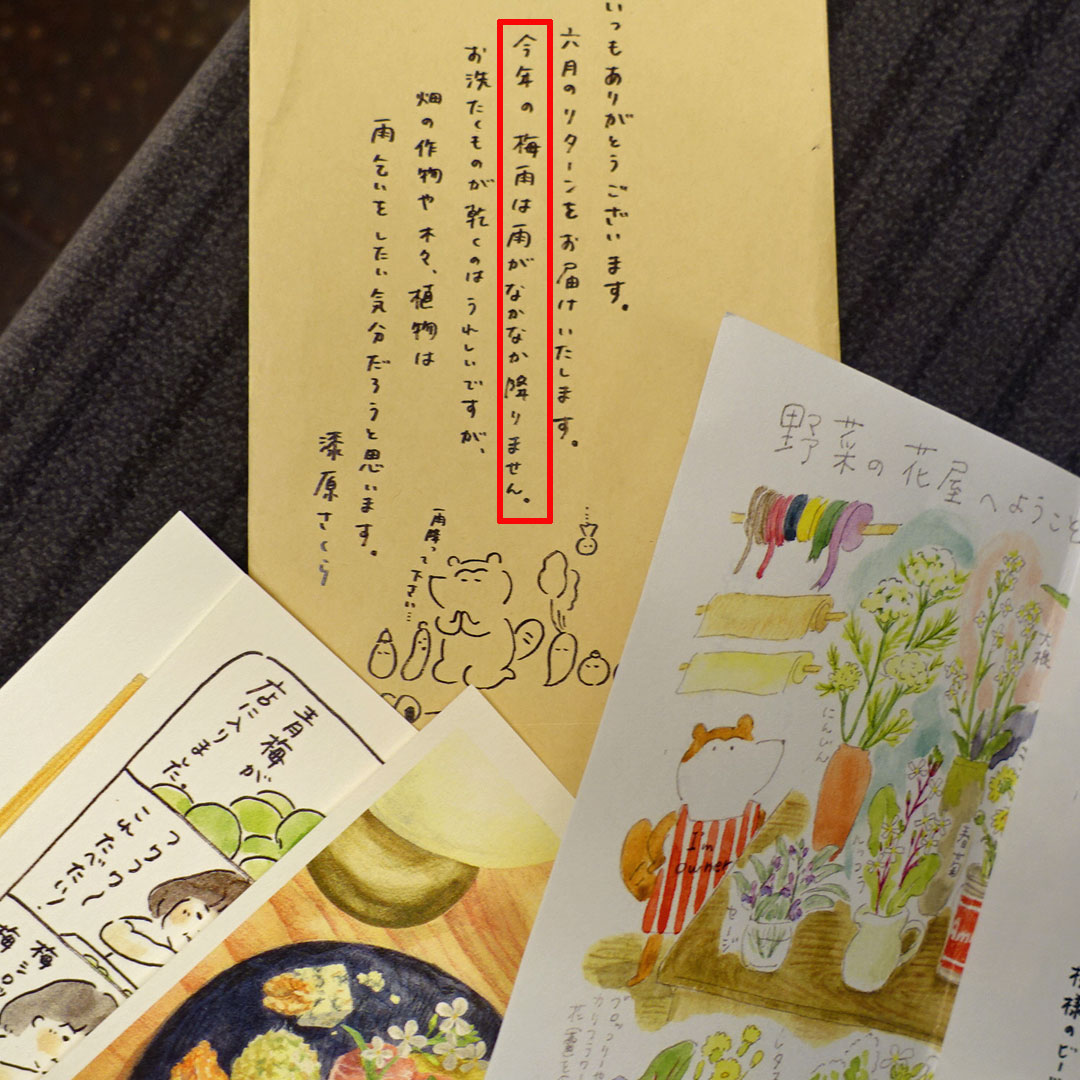 いつもありがとうございます。
六月のリターンをお届けいたします。
今年の梅雨は雨がなかなか降りません。
お洗たくものが乾くのはうれしいですが、
畑の作物や木々、植物は
雨乞いをしたい気分だろうと思います。
漆原さくら
雨降って下さい…
野菜の花屋へようこそ
大根
にんじん
ルッコラ
春菊
I'm
Owner
セージ
ブロッコリーや
カリフラワー
レタス
青梅が
店に入りました。
つやつや〜
こふだべたい!
梅
梅